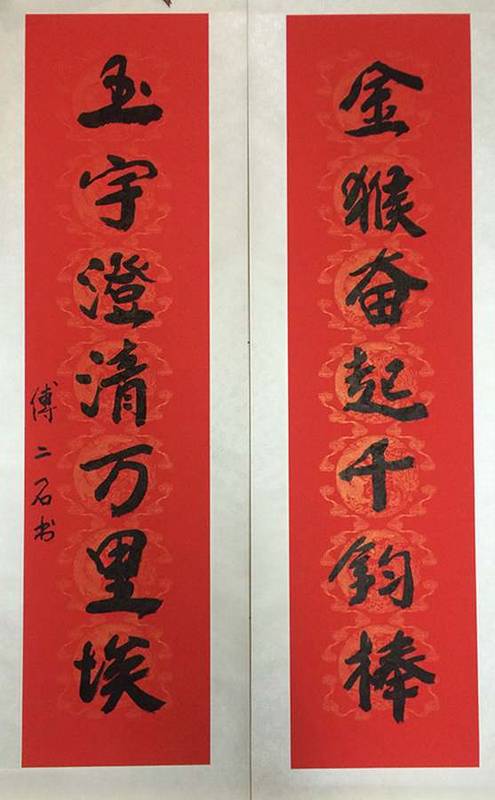 金猴奋起千钧棒
玉宇澄清万里埃
傅二石书